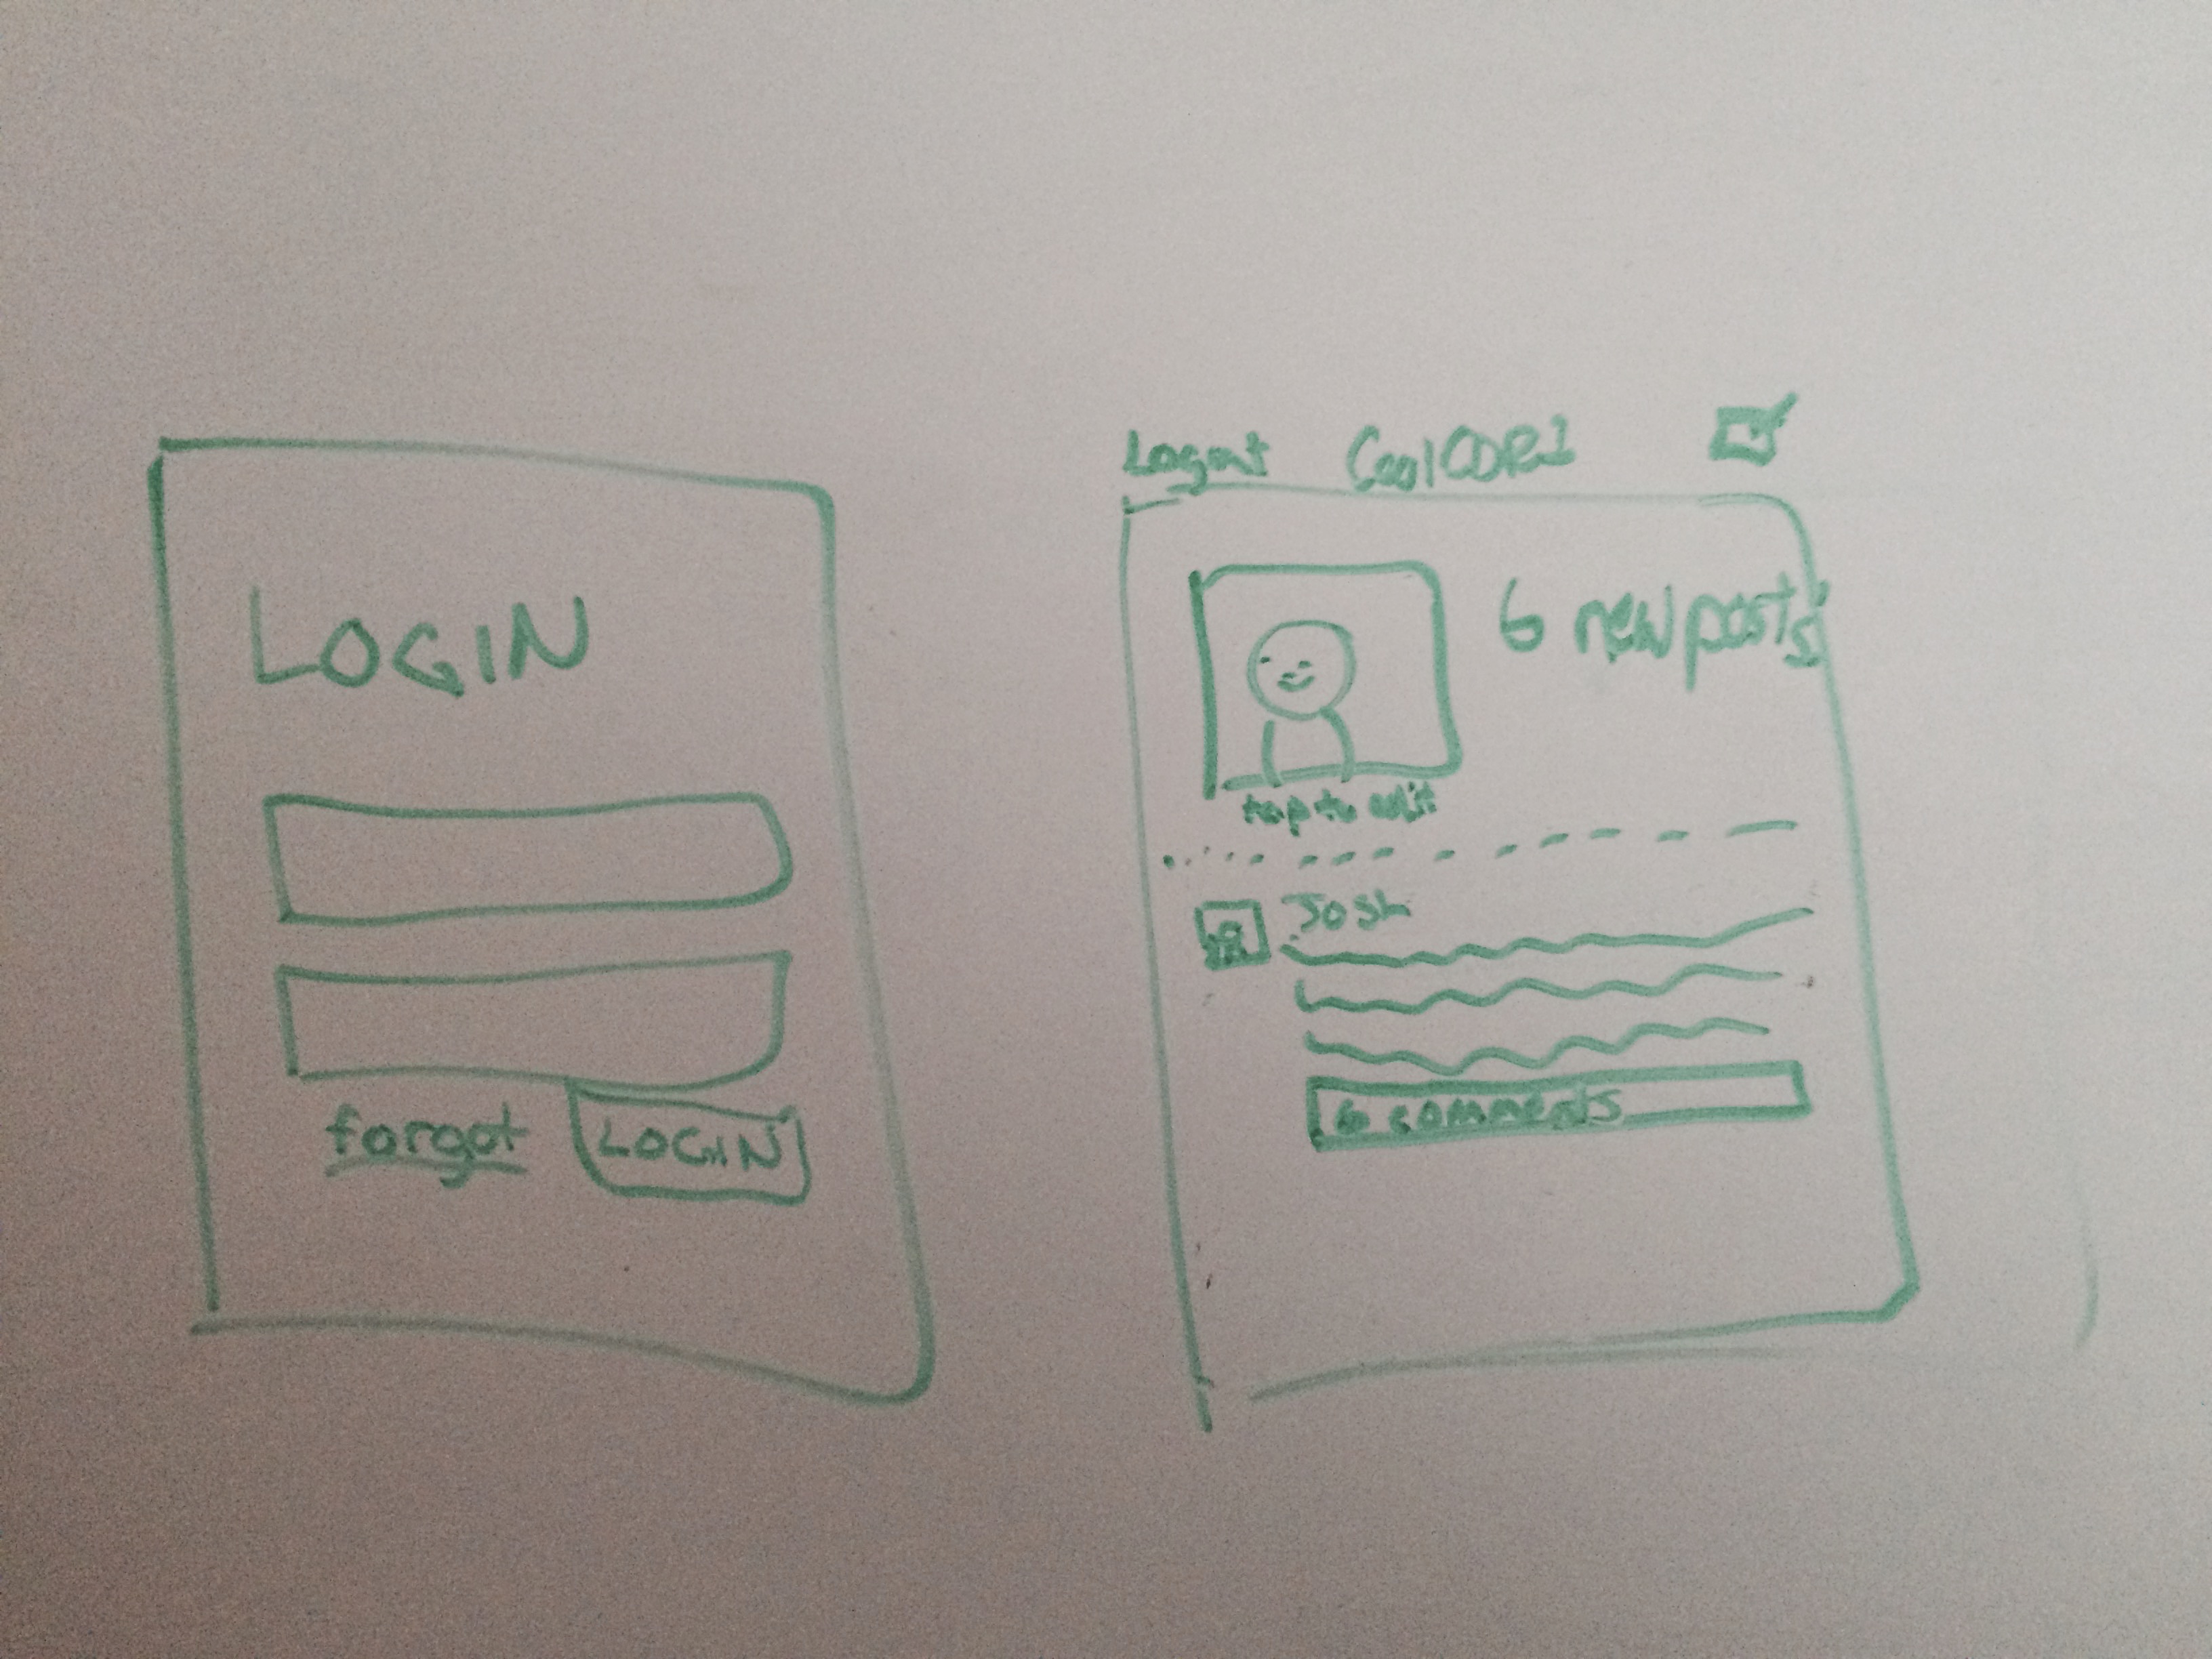 LOGIN
forgot LOGIN
Logout
6 new posts
tap to edit
Josh
6 comments